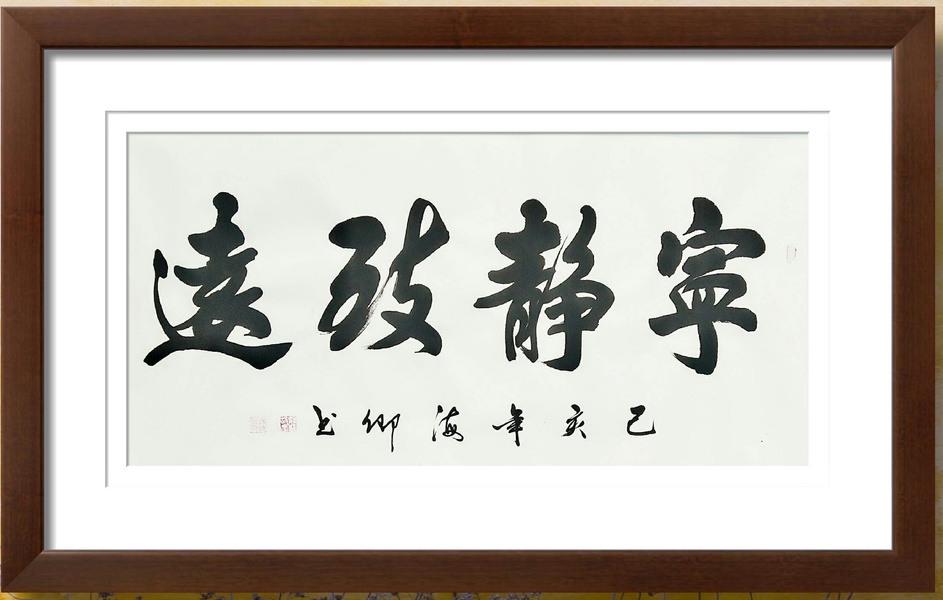 寧靜致遠
己亥年海卿书